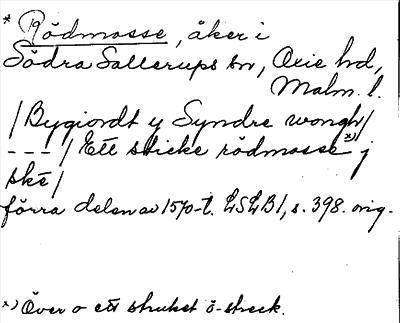 * Rödmosse, åker i
Södra Sallerups sn, Oxie hd,
Malm. l.
/ Bygiordt y Syndre wongh /
--- / Ett sticke rödmosse x) j
ske /
förra delen av 1570-t. LSLB1, s. 398. orig.
x) Över o ett struket ö-streck.